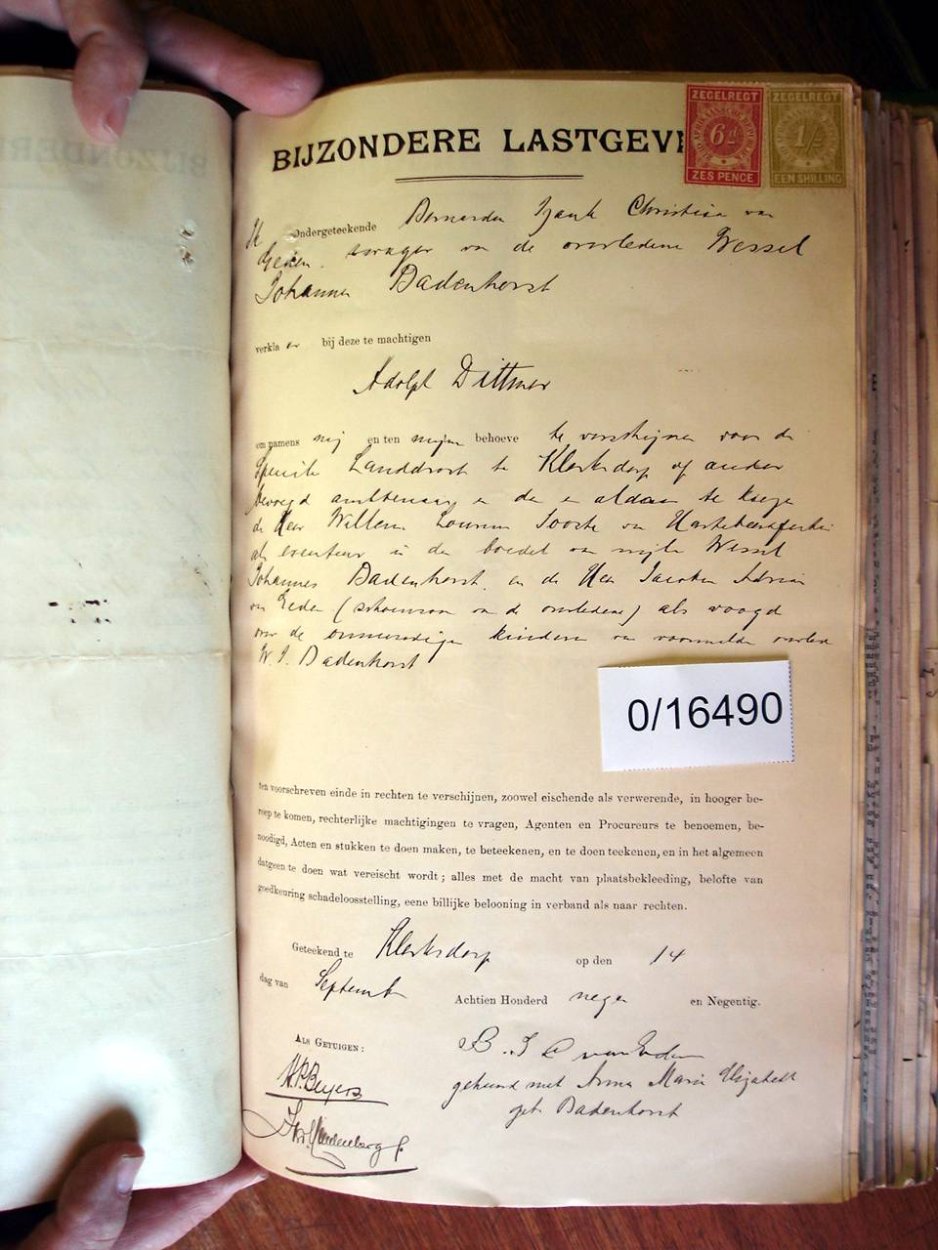 BIJZONDERE LASTGEVI
ZEGELREGT
6d
ZES PENCE
ZEGELREGT
1/-
EEN SHILLING
Ik Ondergeteekende Christina van
Eeden zwager van de overledene Wessel
Johannes Badenhorst
verkla er bij deze te machtigen
Adolph Dittmar
om namens mij en ten mijnen behoeve te verschijnen voor de
Speciale Landdrost te Klerksdorp of ander
bevoegd ambtenaar en de aldaar te
de Heer Willem Lourens Jooste van
als executeur in den boedel van wijle Wessel
Johannes Badenhorst en de Heer Jacobus Adriaan
van Eeden (schoonzoon van de overledene) als voogd
over de onmondige kinderen van voormelde overled
W. J. Badenhorst
0/16490
ten voorschreven einde in rechten te verschijnen, zoowel eischende als verwerende, in hooger be-
roep te komen, rechterlijke machtigingen te vragen, Agenten en Procureurs te benoemen, be-
noodigd, Acten en stukken te doen maken, te beteekenen, en te doen teekenen, en in het algemeen
datgeen te doen wat vereischt wordt; alles met de macht van plaatsbekleeding, belofte van
goedkeuring schadeloosstelling, eene billijke belooning in verband als naar rechten.
Geteekend te Klerksdorp op den 14
dag van September Achtien Honderd negen en Negentig.
ALS GETUIGEN: B. J. C van Eeden
H.P. Beyers gehuwd met Anna Maria Elizabeth
geb. Badenhorst